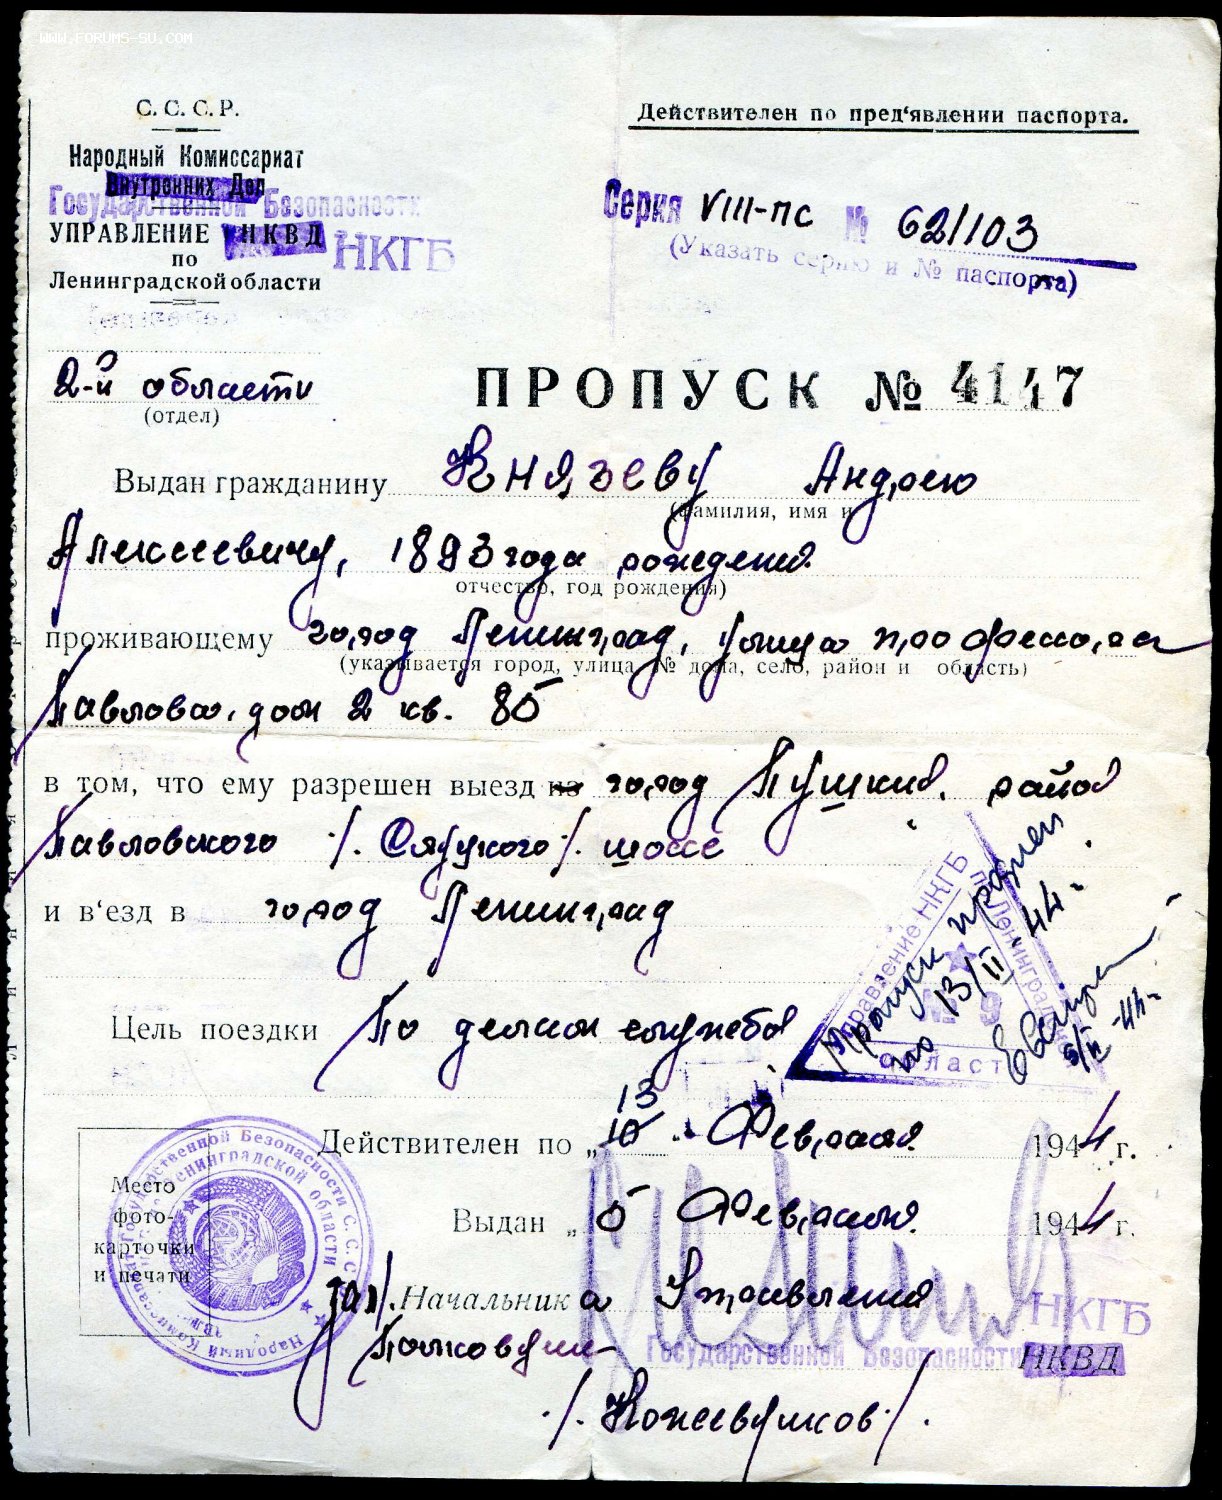 WWW.FORUMS-SU.COM
С. С. С. Р.
Действителен по пред‘явлении паспорта.
Народный Комиссариат
Внутренних Дел
Государственной Безопасности
УПРАВЛЕНИЕ НКВД НКГБ
по
Ленинградской области
Серия VIII-ПС № 621103
(Указать серию и № паспорта)
2-й области
(отдел)
ПРОПУСК № 4147
Выдан гражданину Князеву Андрею
(фамилия, имя и
Алексеевичу, 1893 года рождения
отчество, год рождения)
проживающему город Ленинград, улица профессора
(указывается город, улица, № дома, село, район и область)
Павлова, дом 2 кв. 85
в том, что ему разрешен выезд на город Пушкин, район
Павловского /. Слуцкого /. шоссе
и в‘езд в город Ленинград
Цель поездки По делам службы
Управление НКГБ
по Ленинградской
№ 9
Област
Пропуск продлен
по 13/II 44
5/II-44
Действителен по „10 13 " Февраля 1944 г.
Выдан „5 Февраля 1944 г.
Место
фото-
карточки
и печати
Народный Комиссариат Государственной Безопасности С.С.С.Р.
Ленинградской области
Зам. Начальника Управления НКГБ
Государственной Безопасности НКВД
Полковник
/. Кожевников /.